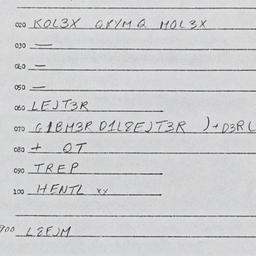 020 KOL3X QRYMQ MOL3X
030 —
040 =
050 =
060 LEJT3R
070 G1BM3R D1L8EJT3R )+D3RL
080 + OT
090 TREP
100 HENTL xy
900 L8FJM